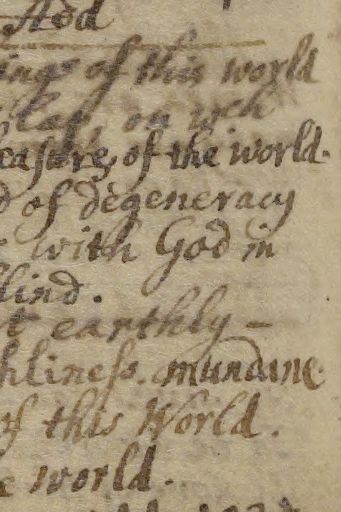 Add
ings of this world
on wch
easures of the world.
d of degeneracy
with God in
lind.
t earthly –
hliness. mundane.
of this World.
e world.